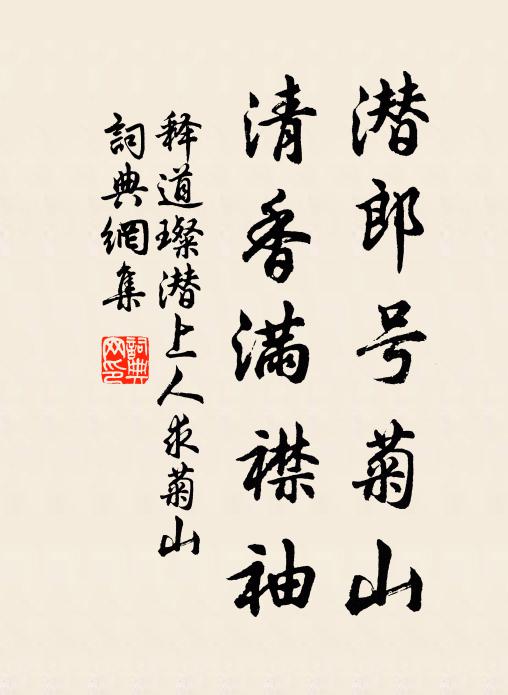 潜郎号菊山
清香满襟袖
释道璨潜上人求菊山
詞典網集
詞典网印